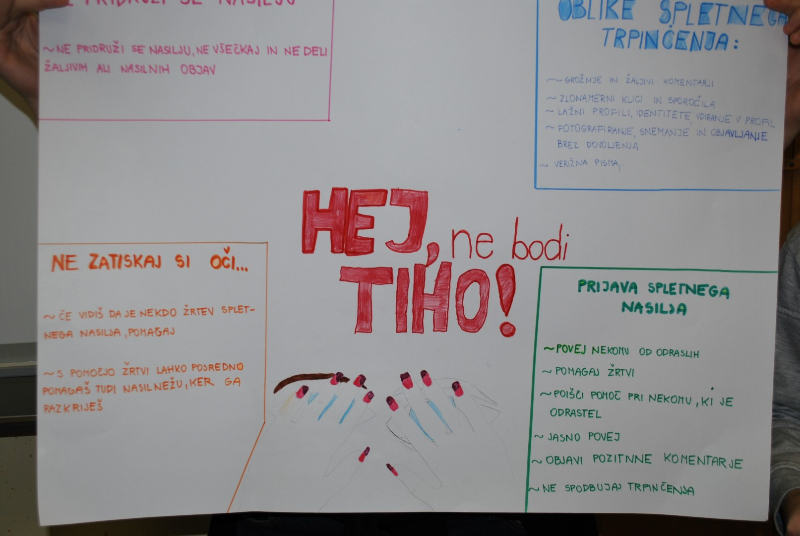 PRIDRUŽI SE NASILJU
~ NE PRIDRUŽI SE NASILJU, NE VŠEČKAJ IN NE DELI
ŽALJIVIH ALI NASILNIH OBJAV
OBLIKE SPLETNEGA
TRPINČENJA:
~ GROŽNJE IN ŽALJIVI KOMENTARJI
~ ZLONAMERNI KLICI IN SPOROČILA
~ LAŽNI PROFILI, IDENTITETE, VDIRANJE V PROFIL
~ FOTOGRAFIRANJE, SNEMANJE IN OBJAVLJANJE
BREZ DOVOLJENJA
~ VERIŽNA PISMA,
HEJ, ne bodi
TIHO!
NE ZATISKAJ SI OČI...
~ ČE VIDIŠ DA JE NEKDO ŽRTEV SPLET-
NEGA NASILJA, POMAGAJ
~ S POMOČJO ŽRTVI LAHKO POSREDNO
POMAGAŠ TUDI NASILNEŽU, KER GA
RAZKRIJEŠ
PRIJAVA SPLETNEGA
NASILJA
~ POVEJ NEKOMU OD ODRASLIH
~ POMAGAJ ŽRTVI
~ POIŠČI POMOČ PRI NEKOMU, KI JE
ODRASTEL
~ JASNO POVEJ
~ OBJAVI POZITNNE KOMENTARJE
~ NE SPODBUJAJ TRPINČENJA